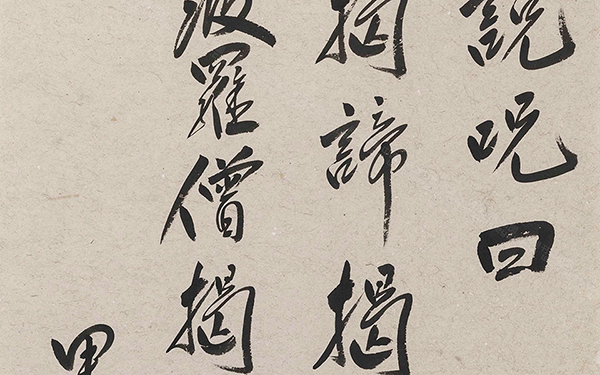 說呪曰
揭諦揭
波羅僧揭